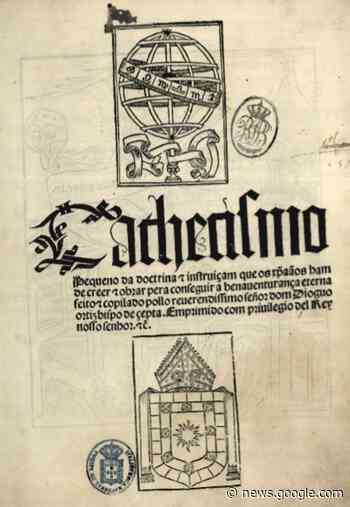 Cathecismo
Pequeno da doctrina & instruiçam que os xp̃aãos ham
de creer & obrar pera conseguir a benauenturança eterna
feito & copilado pollo reuerendissimo señor dom Dioguo
ortiz bispo de çepta. Emprimido com priuilegio del Rey
nosso senhor. &c.
news.google.com